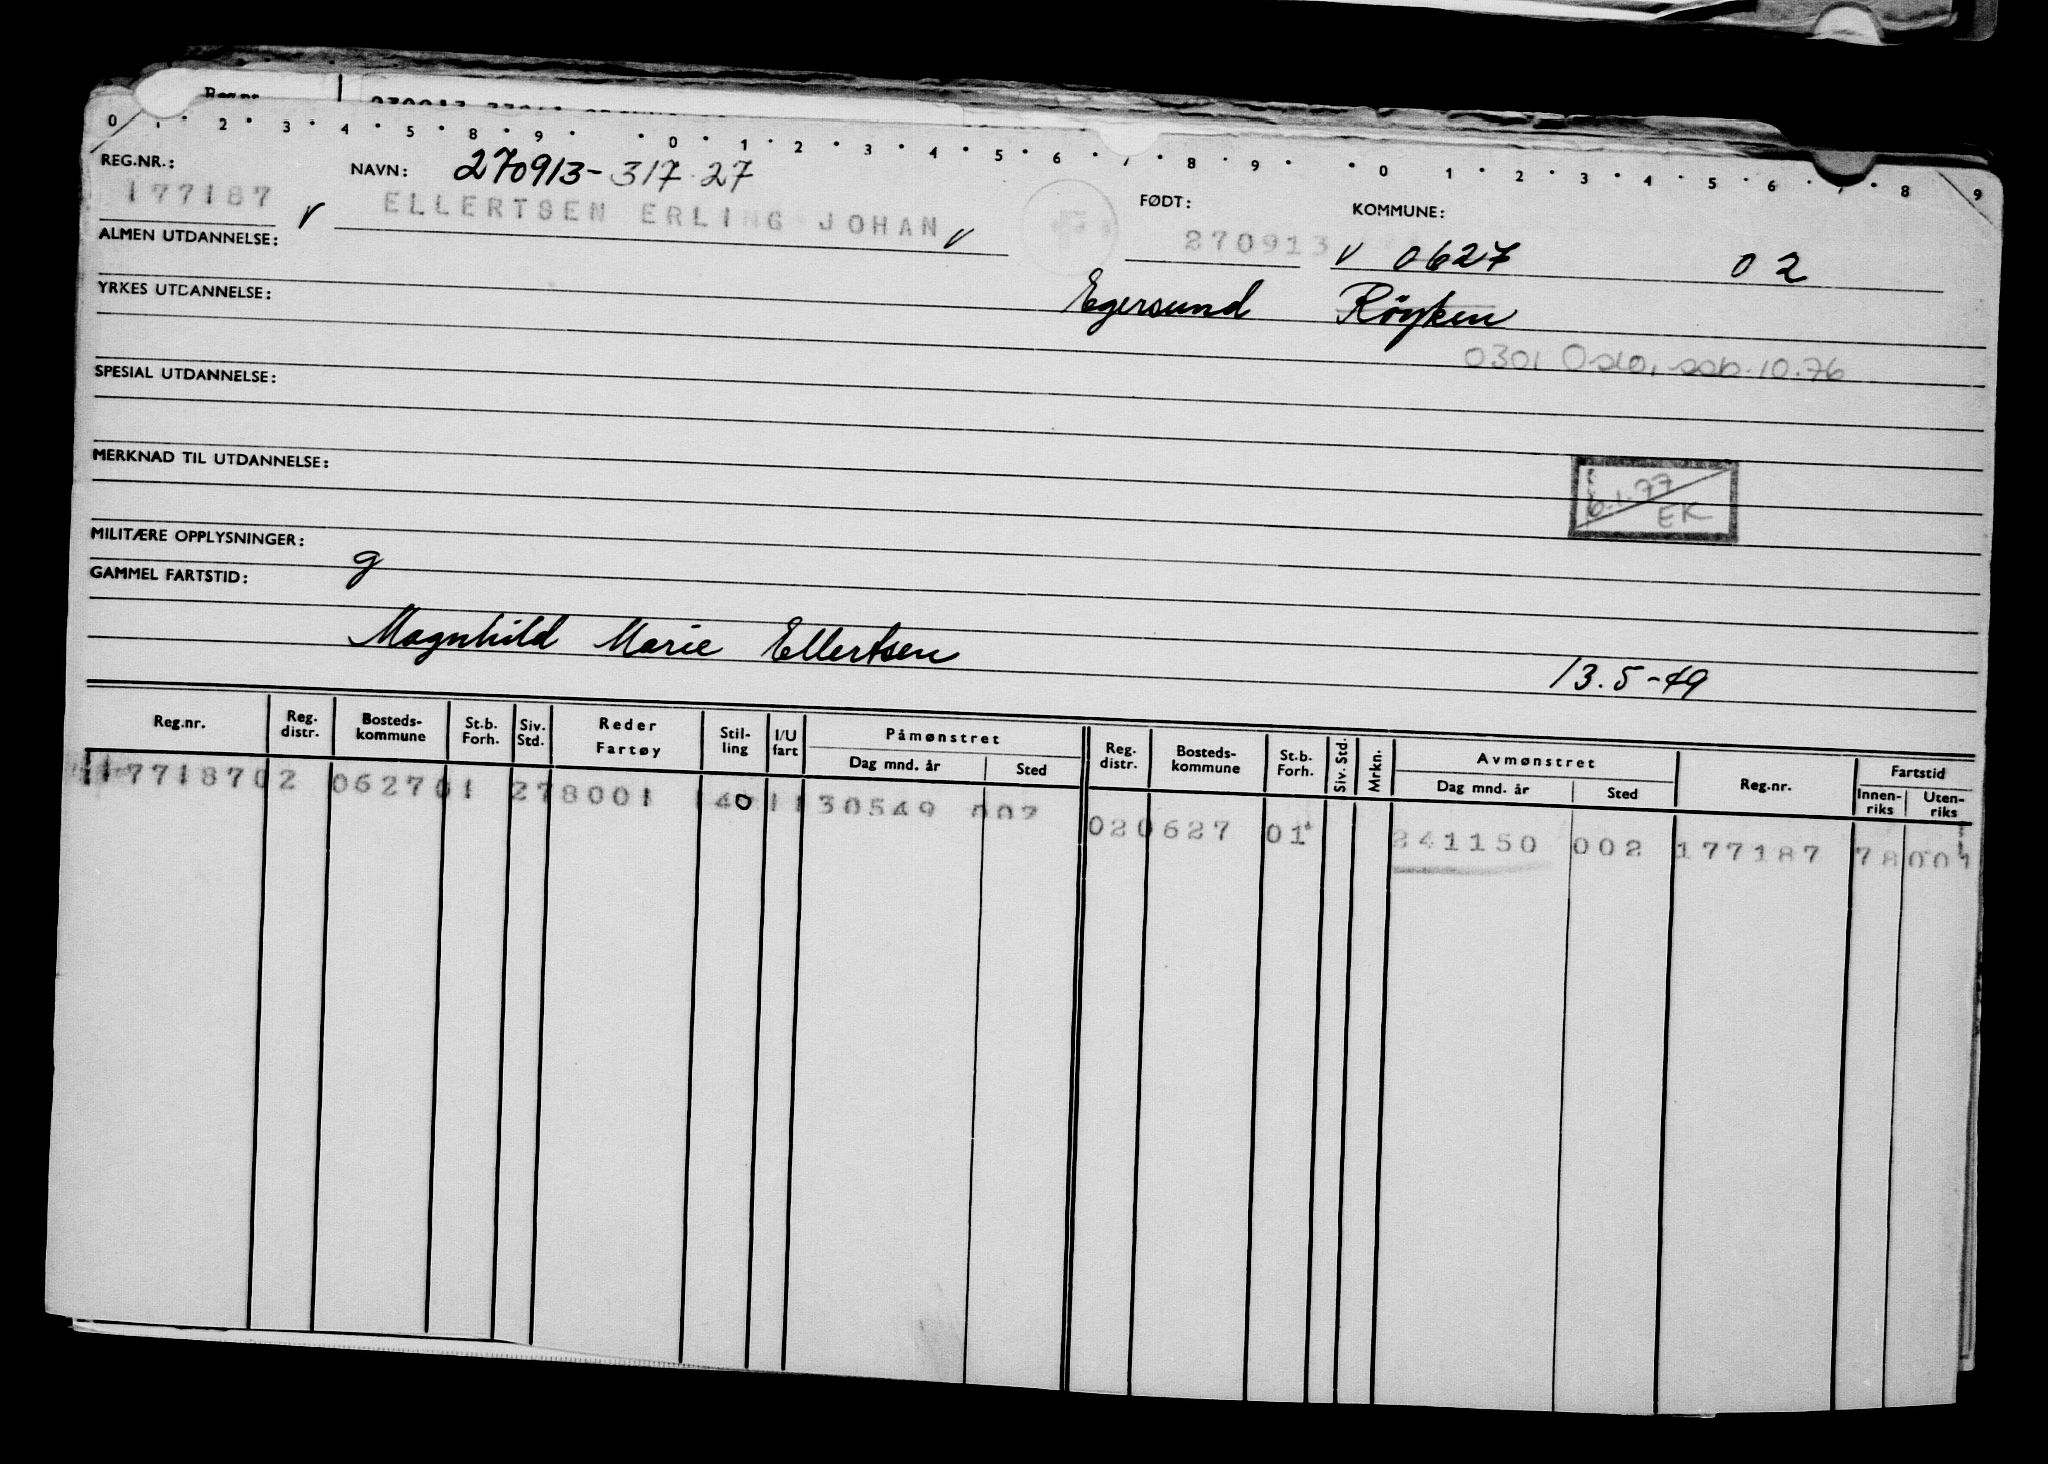 Reg.nr.
0 1 2 3 4 5 8 9 0 1 2 3 4 5 6 7 8 9 0 1 2 3 4 5 6 7 8 9
REG.NR.: NAVN: 270913-317.27 FØDT: KOMMUNE:
177187 v ELLERTSEN ERLING JOHAN v 270913 v 0627 02
ALMEN UTDANNELSE:
YRKES UTDANNELSE: Egersund Röyken
0301 Oslo, ssb.10.76
SPESIAL UTDANNELSE:
MERKNAD TIL UTDANNELSE:
6.1.77
EK
MILITÆRE OPPLYSNINGER: g
GAMMEL FARTSTID:
Magnhild Marie Ellertsen 13.5-49
Reg.nr. Reg. distr. Bosteds-kommune St.b. Forh. Siv. Std. Reder Fartøy Stil-ling I/U fart Påmønstret Dag mnd. år Sted Reg. distr. Bosteds-kommune St.b. Forh. Siv. Std. Mrkn. Avmønstret Dag mnd. år Sted Reg.nr. Fartstid Innen-riks Uten-riks
177187 02 0627 01 2 78001 40 1 130549 002 02 0627 01 241150 002 177187 78 001